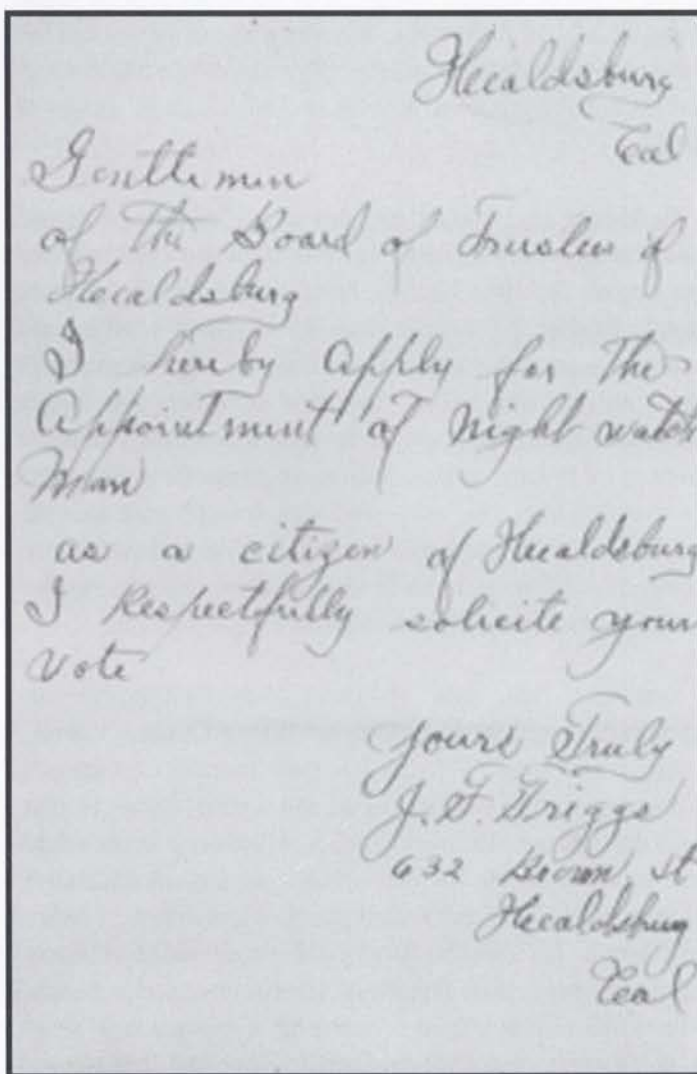 Healdsburg
Cal
Gentlemen
of the Board of Trustees of
Healdsburg
I hereby Apply for the
Appointment of Night watch
Man
as a citizen of Healdsburg
I Respectfully solicite your
Vote
Yours Truly
J. F. Griggs
632 Brown St
Healdsburg
Cal